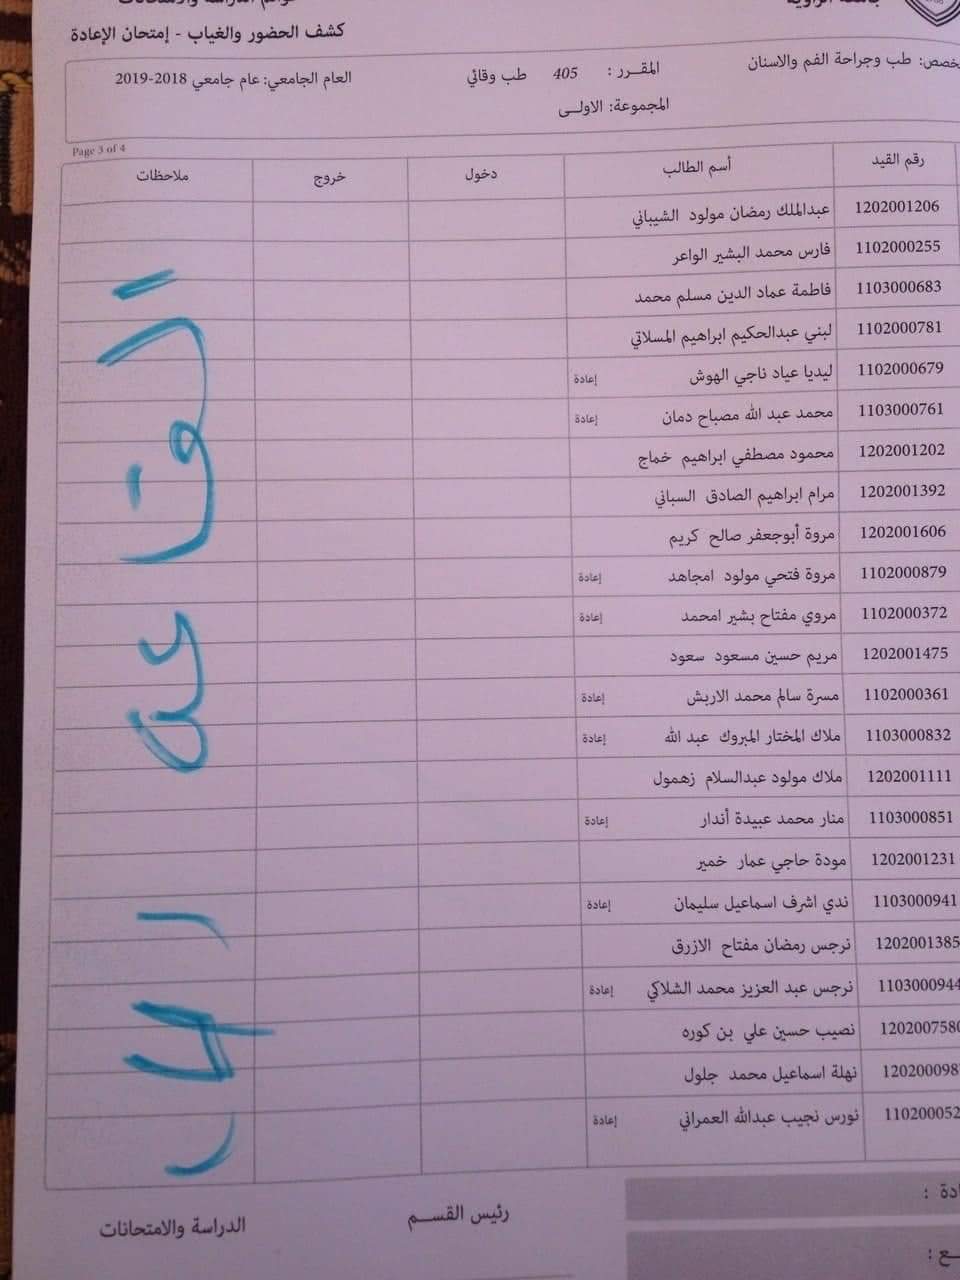 جامعة الزاوية
قوائم الدراسة والامتحانات
كشف الحضور والغياب - إمتحان الإعادة
طب وجراحة الفم والاسنان
المقـــرر : 405 طب وقائي
العام الجامعي: عام جامعي 2018-2019
المجموعة: الاولــى
Page 3 of 4
رقم القيد أسم الطالب دخول خروج ملاحظات
1202001206 عبدالملك رمضان مولود الشيباني
1102000255 فارس محمد البشير الواعر
1103000683 فاطمة عماد الدين مسلم محمد
1102000781 لبني عبدالحكيم ابراهيم المسلاتي
1102000679 ليديا عياد ناجي الهوش إعادة
1103000761 محمد عبد الله مصباح دمان إعادة
1202001202 محمود مصطفي ابراهيم خماج
1202001392 مرام ابراهيم الصادق السباني
1202001606 مروة أبوجعفر صالح كريم
1102000879 مروة فتحي مولود امجاهد إعادة
1102000372 مروي مفتاح بشير امحمد إعادة
1202001475 مريم حسين مسعود سعود
1102000361 مسرة سالم محمد الاربش إعادة
1103000832 ملاك المختار المبروك عبد الله إعادة
1202001111 ملاك مولود عبدالسلام زهمول
1103000851 منار محمد عبيدة أندار إعادة
1202001231 مودة حاجي عمار خمير
1103000941 ندي اشرف اسماعيل سليمان إعادة
1202001385 نرجس رمضان مفتاح الازرق
1103000944 نرجس عبد العزيز محمد الشلاكي إعادة
1202007580 نصيب حسين علي بن كوره
120200098 نهلة اسماعيل محمد جلول
110200052 نورس نجيب عبدالله العمراني إعادة
رئيس القســم
الدراسة والامتحانات